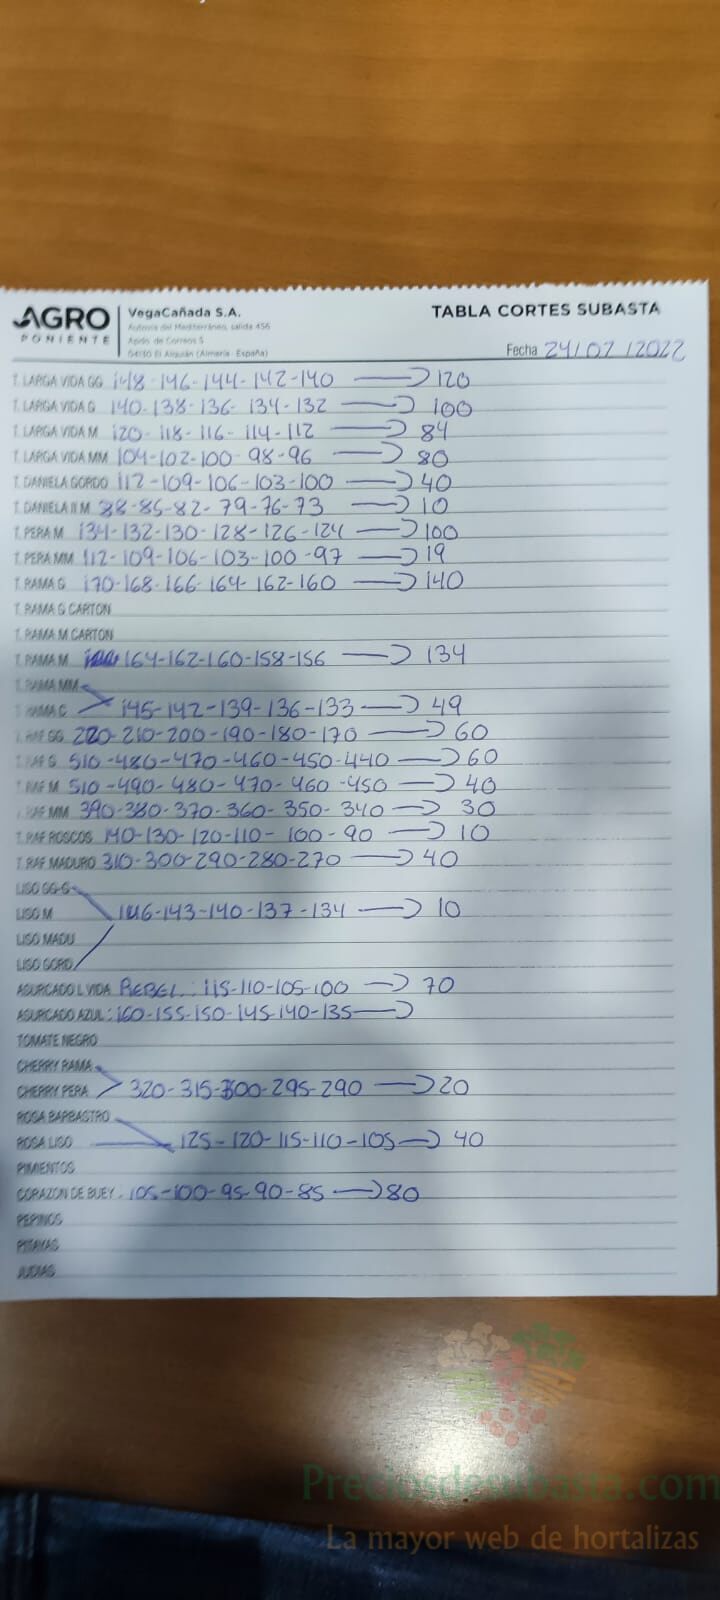 AGRO
PONIENTE
VegaCañada S.A.
Autovía del Mediterráneo, salida 456
Apdo. de Correos 5
04130 El Alquián (Almería · España)
TABLA CORTES SUBASTA
Fecha 24/02/2022
T. LARGA VIDA GG 148-146-144-142-140 → 120
T. LARGA VIDA G 140-138-136-134-132 → 100
T. LARGA VIDA M 120-118-116-114-112 → 84
T. LARGA VIDA MM 104-102-100-98-96 → 80
T. DANIELA GORDO 112-109-106-103-100 → 40
T. DANIELA II M 88-85-82-79-76-73 → 10
T. PERA M 134-132-130-128-126-124 → 100
T. PERA MM 112-109-106-103-100-97 → 19
T. RAMA G 170-168-166-164-162-160 → 140
T. RAMA G CARTON
T. RAMA M CARTON
T. RAMA M 164-162-160-158-156 → 134
T. RAMA MM
T. RAMA C 145-142-139-136-133 → 49
T. RAF GG 220-210-200-190-180-170 → 60
T. RAF G 510-480-470-460-450-440 → 60
T. RAF M 510-490-480-470-460-450 → 40
T. RAF MM 390-380-370-360-350-340 → 30
T. RAF ROSCOS 140-130-120-110-100-90 → 10
T. RAF MADURO 310-300-290-280-270 → 40
LISO GG-G
LISO M 146-143-140-137-134 → 10
LISO MADU
LISO GORD
ASURCADO L VIDA REBEL: 115-110-105-100 → 70
ASURCADO AZUL: 160-155-150-145-140-135 →
TOMATE NEGRO
CHERRY RAMA
CHERRY PERA 320-315-300-295-290 → 20
ROSA BARBASTRO
ROSA LISO 125-120-115-110-105 → 40
PIMIENTOS
CORAZON DE BUEY: 105-100-95-90-85 → 80
PEPINOS
PITAYAS
JUDIAS
Preciosdesubasta.com
La mayor web de hortalizas